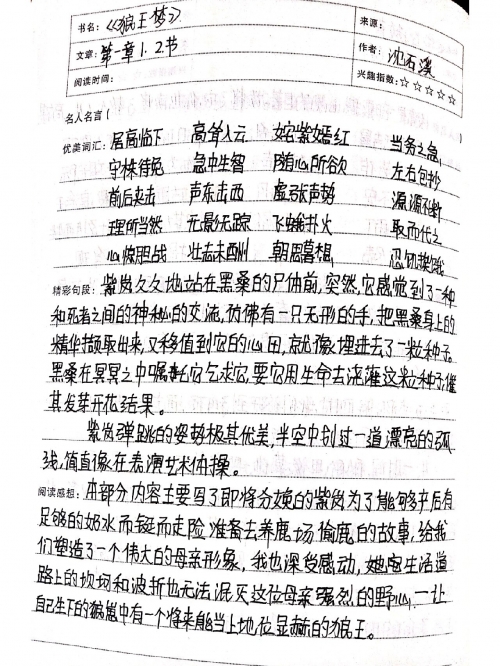 书名：《狼王梦》
来源：
文章：第一章1.2节
作者：沈石溪
阅读时间：
兴趣指数：☆☆☆☆☆
名人名言（
优美词汇：居高临下 高耸入云 姹紫嫣红 当务之急
守株待兔 急中生智 随心所欲 左右包抄
前后夹击 声东击西 虚张声势 源源不断
理所当然 无影无踪 飞蛾扑火 取而代之
心惊胆战 壮志未酬 朝思暮想 忍饥挨饿
精彩句段：紫岚久久地站在黑桑的尸体前，突然，它感觉到了一种
和死者之间的神秘的交流，仿佛有一只无形的手，把黑桑身上的
精华撷取出来，又移值到它的心田，就像埋进去了一粒种子。
黑桑在冥冥之中嘱托它乞求它，要它用生命去浇灌这粒种子，催
其发芽开花结果。
紫岚弹跳的姿势极其优美，半空中划过一道漂亮的弧
线，简直像在表演艺术体操。
阅读感想：本部分内容主要写了即将分娩的紫岚为了能够产后有
足够的奶水而铤而走险准备去养鹿场偷鹿的故事，给我
们塑造了一个伟大的母亲形象，我也深受感动，她生活道
路上的坎坷和波折也无法泯灭这位母亲强烈的野心：让
自己生下的狼崽中有一个将来能当上地位显赫的狼王。